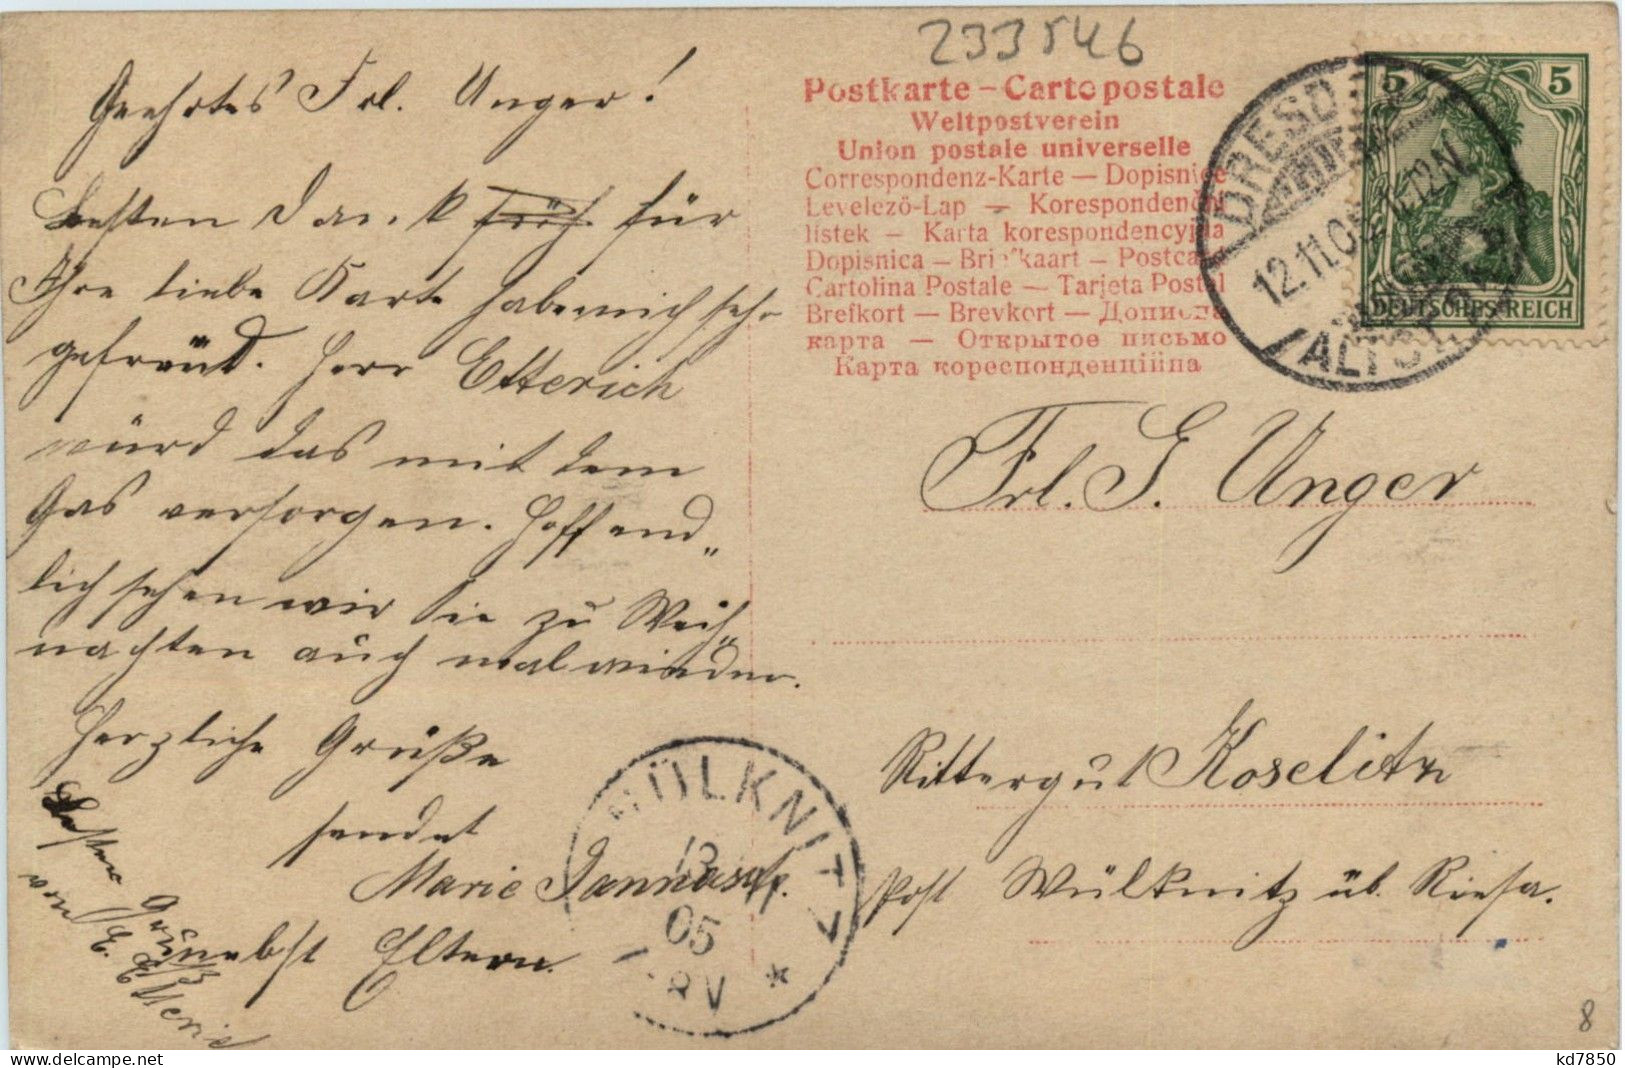 233546
Geehrtes Frl. Unger!
Besten Dank für
Ihre liebe Karte habe mich sehr
gefreut. Herr Etterich
würd das mit dem
Gas versorgen. Hoffend„
lich sehen wir Sie zu Weih„
nachten auch mal wieder.
Herzliche Grüße
sendet
Marie Jannasch.
nebst Eltern.
Besten Gruß
von E. Etterich
Postkarte – Carte postale
Weltpostverein
Union postale universelle
Correspondenz-Karte — Dopisnice
Levelező-Lap — Korespondenční
listek — Karta korespondencyjna
Dopisnica — Briefkaart — Postcard
Cartolina Postale — Tarjeta Postal
Brefkort — Brevkort — Дописна
карта — Открытое письмо
Карта кореспонденційна
DRESDEN
12.11.05. 11-12N.
ALTST.
5 5
DEUTSCHES REICH
Frl. G. Unger
Rittergut Koselitz
Post Wülknitz üb. Riesa.
WÜLKNITZ
13
05
7-8V
*
8
kd7850